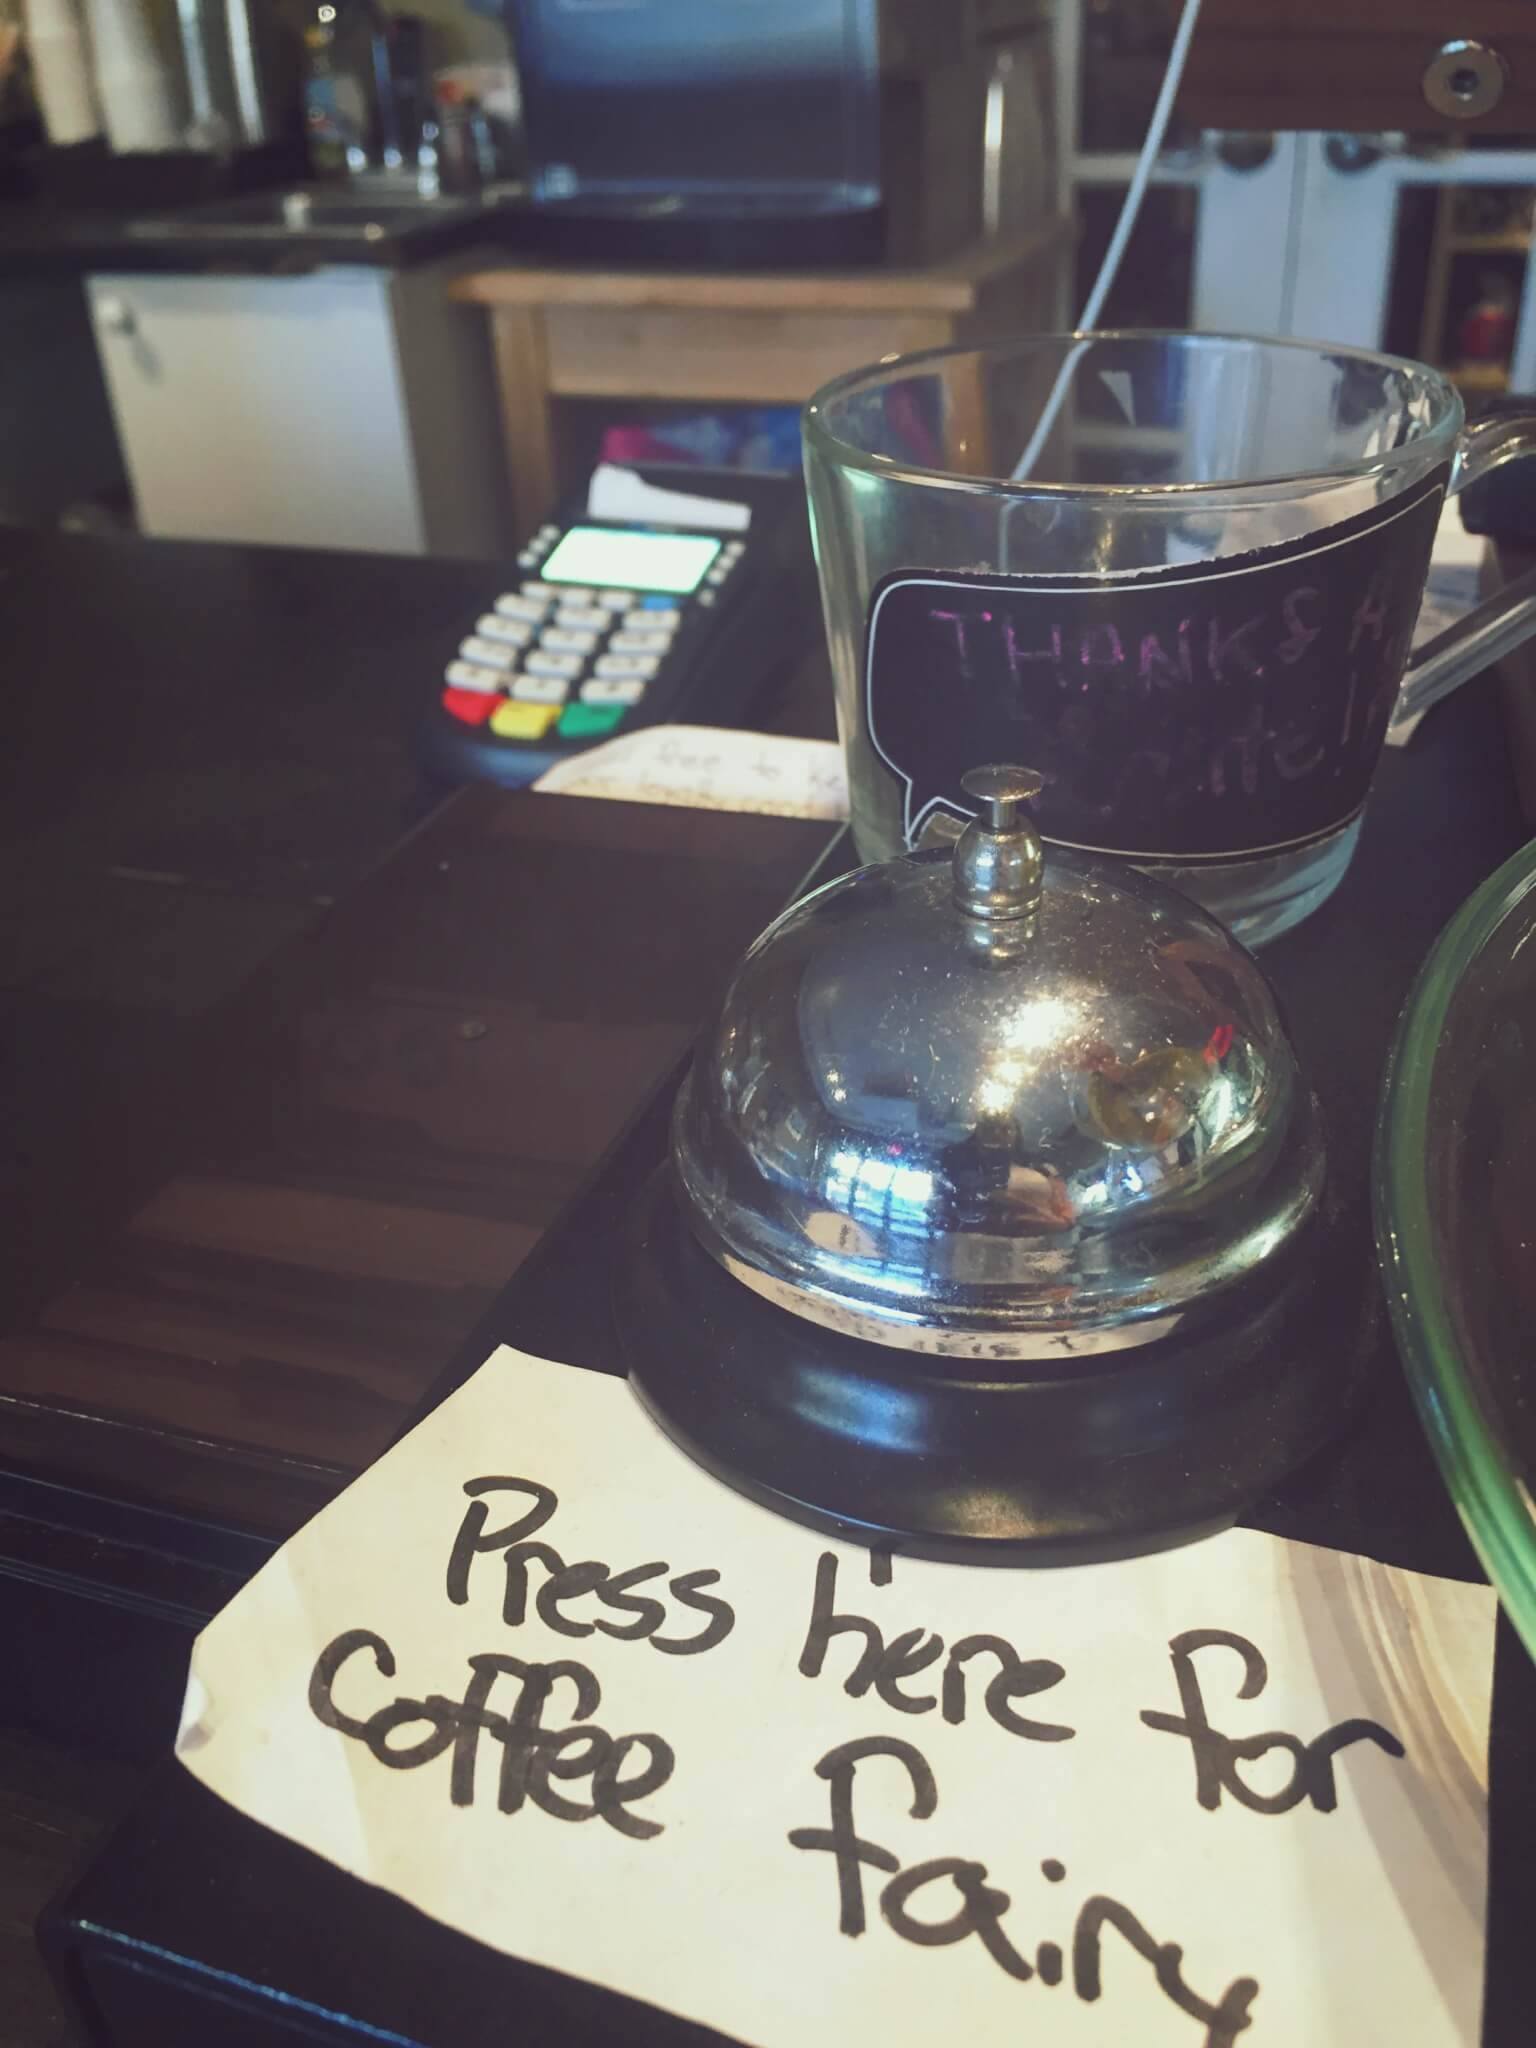 THANKS A
Press here for
Coffee fairy